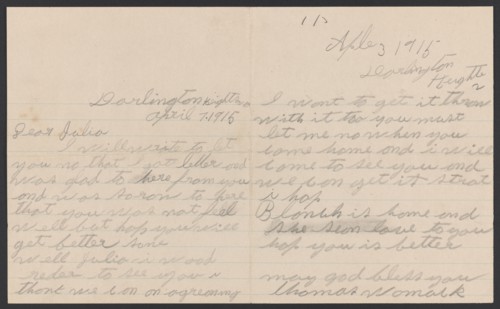 Darlington Hights
April 7-1916
Dear Julia
I will write to let
you no that I got better and
Was gad to here from you
and was saron to here
that you was not fell
well but hop you will
get better sone
well Julia i wood
reder to see you
thank we can on agreeming
113
3 1915
Darlington
Heights
2
I want to get it throw
with it too you must
let me now when you
come home and i will
come to see you and
we can get it strat
i hop
Blanch is home and
she love to you
hop you is better
may god bless you
thomas womack